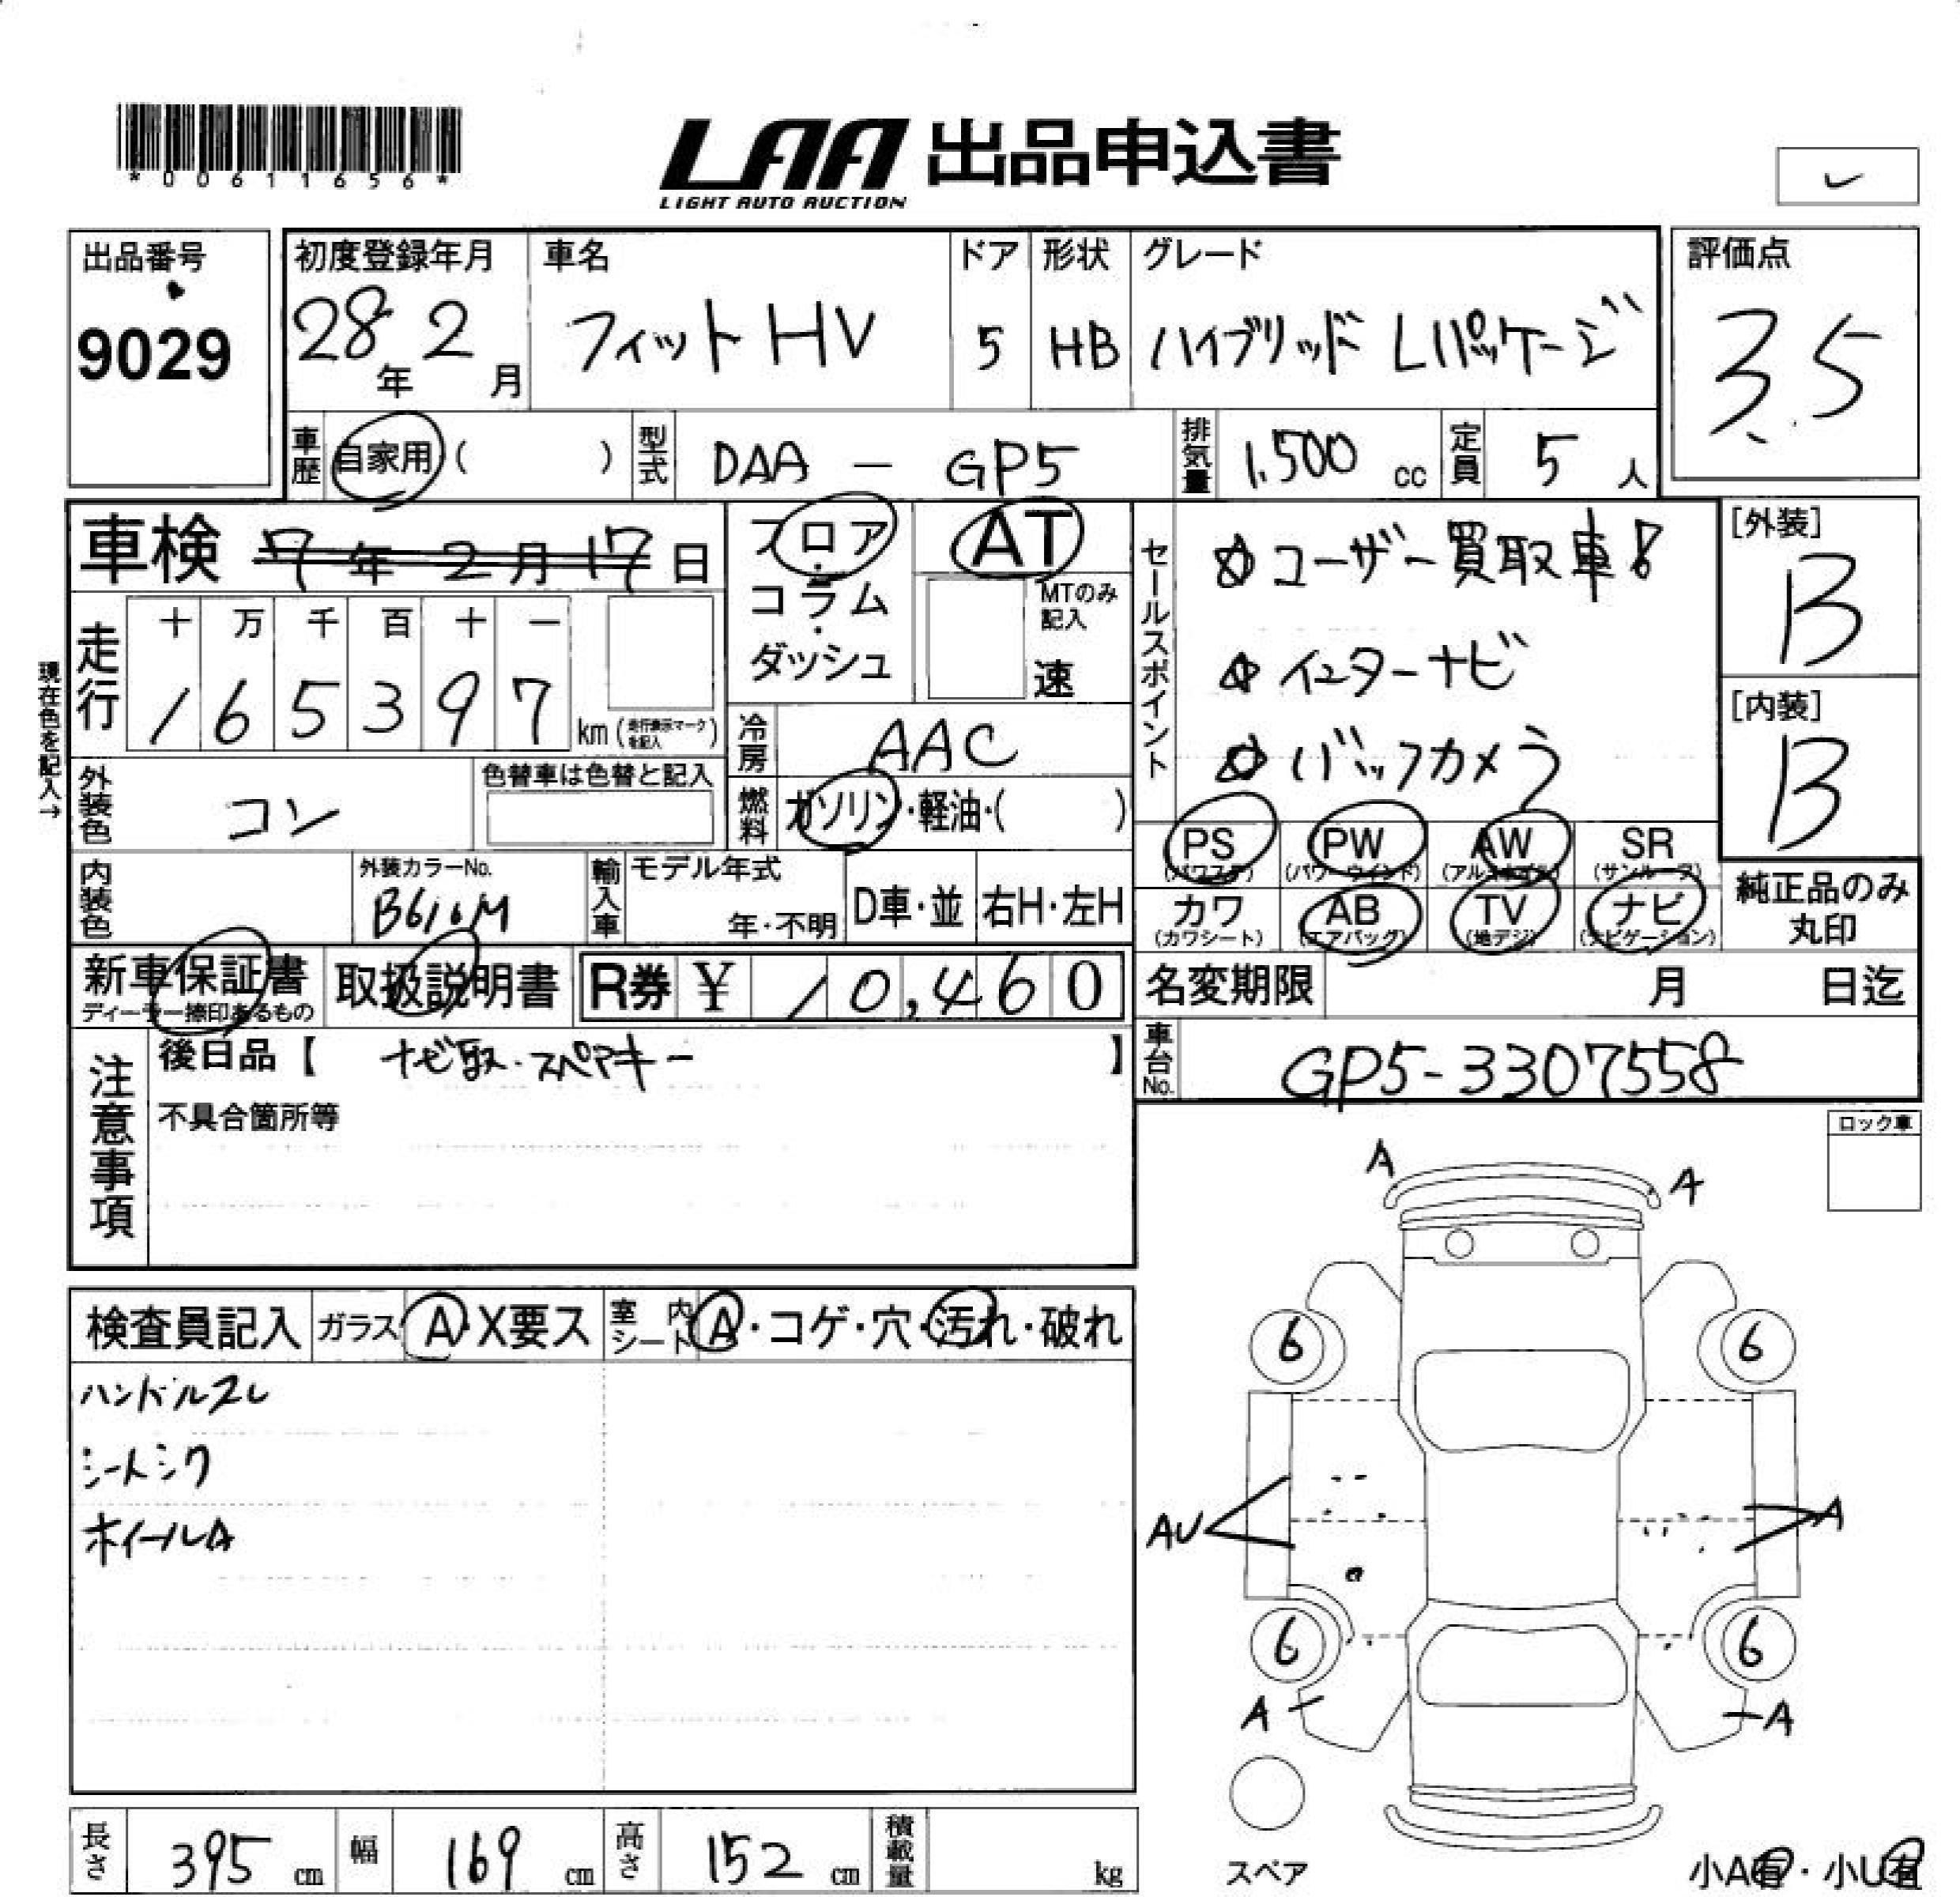 *00611656*
LAA 出品申込書
LIGHT AUTO AUCTION
出品番号
9029
初度登録年月
28年2月
車名
フィットHV
ドア
5
形状
HB
グレード
ハイブリッド Lパッケージ
評価点
3.5
車歴
自家用( )
型式
DAA - GP5
排気量
1,500 cc
定員
5人
車検 7年2月17日
フロア・
コラム・
ダッシュ
AT
MTのみ
記入
速
セールスポイント
☆ユーザー買取車!
☆インターナビ
☆バックカメラ
[外装]
B
[内装]
B
現在色を記入→
走行
十 万 千 百 十 一
1 6 5 3 9 7
km(走行表示マークを記入)
冷房
AAC
外装色
コン
色替車は色替と記入
燃料
ガソリン・軽油・( )
PS
(パワステ)
PW
(パワーウインド)
AW
(アルミホイル)
SR
(サンルーフ)
内装色
外装カラーNo.
B610M
輸入車
モデル年式
年・不明
D車・並
右H・左H
カワ
(カワシート)
AB
(エアバッグ)
TV
(地デジ)
ナビ
(ナビゲーション)
純正品のみ
丸印
新車保証書
ディーラー捺印あるもの
取扱説明書
R券 ¥ 10,460
名変期限 月 日迄
注意事項
後日品【 ナビ取・スペアキー 】
不具合箇所等
車台No.
GP5-3307558
ロック車
検査員記入
ガラス
A・X要ス
室内シート
A・コゲ・穴・汚れ・破れ
ハンドルスレ
シートシワ
ホイールA
A
A
6
6
AU
A
6
6
A
A
スペア
小A有・小U有
長さ
395 cm
幅
169 cm
高さ
152 cm
積載量
kg